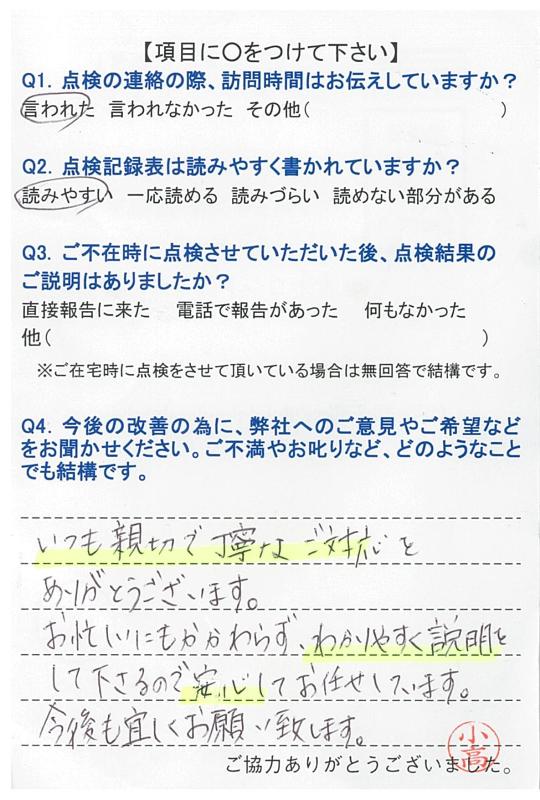 【項目に〇をつけて下さい】
Q1. 点検の連絡の際、訪問時間はお伝えしていますか?
言われた 言われなかった その他( )
Q2. 点検記録表は読みやすく書かれていますか?
読みやすい 一応読める 読みづらい 読めない部分がある
Q3. ご不在時に点検させていただいた後、点検結果の
ご説明はありましたか?
直接報告に来た 電話で報告があった 何もなかった
他( )
※ご在宅時に点検をさせて頂いている場合は無回答で結構です。
Q4. 今後の改善の為に、弊社へのご意見やご希望など
をお聞かせください。ご不満やお叱りなど、どのようなこと
でも結構です。
いつも親切で丁寧なご対応を
ありがとうございます。
お忙しいにもかかわらず、わかりやすく説明を
して下さるので安心してお任せしています。
今後も宜しくお願い致します。
小高
ご協力ありがとうございました。